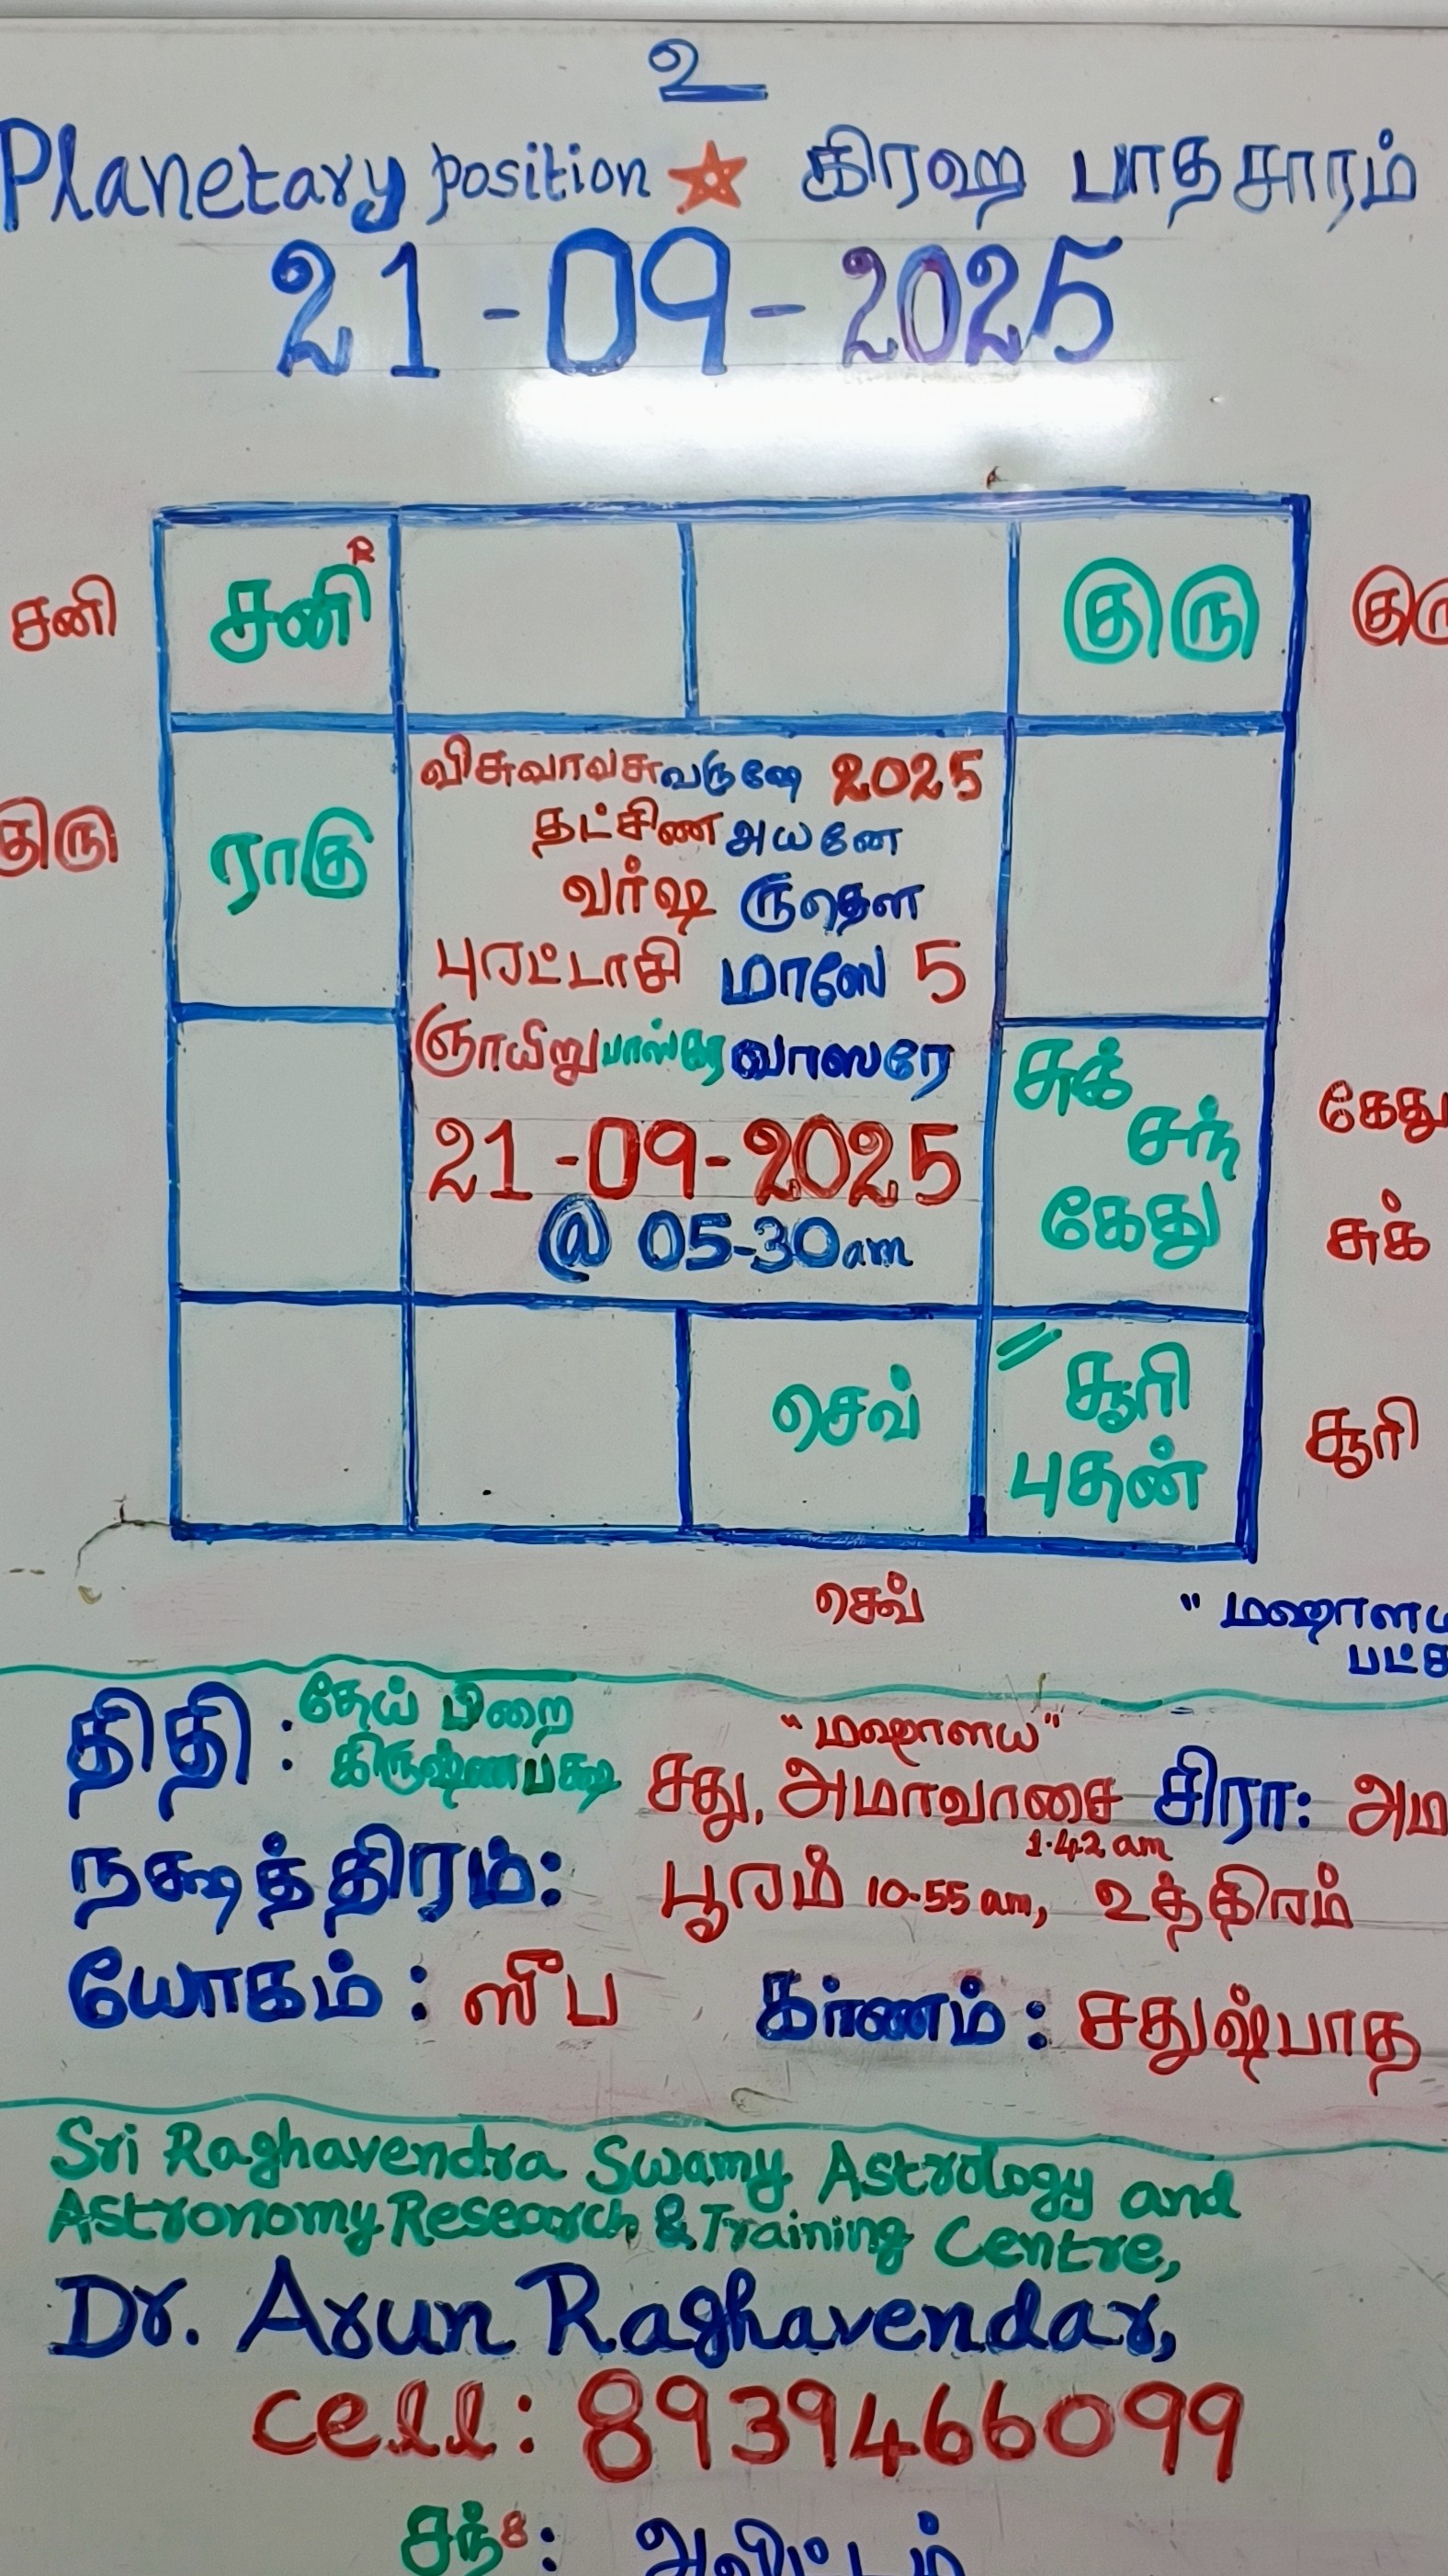 உ
Planetary position ☆ கிரஹ பாதசாரம்
21-09-2025
சனி
சனி R
குரு
குரு
ராகு
விசுவாவசுவருஷே 2025
தட்சிண அயனே
வர்ஷ ருதௌ
புரட்டாசி மாஸே 5
ஞாயிறு பாஸ்கர வாஸரே
21-09-2025
@ 05-30am
சுக்
சந்
கேது
கேது
சுக்
செவ்
"சூரி
புதன்
சூரி
செவ்
" மஹாளய
திதி : தேய் பிறை
கிருஷ்ணபக்ஷ
"மஹாளய"
சது, அமாவாசை சிரா:
1.42 am
நக்ஷத்திரம்: பூரம் 10-55 am, உத்திரம்
யோகம் : ஸுப கரணம் : சதுஷ்பாத
Sri Raghavendra Swamy Astrology and
Astronomy Research & Training Centre,
Dr. Arun Raghavendar,
cell: 8939466099
சந் 8 : அவிட்டம்